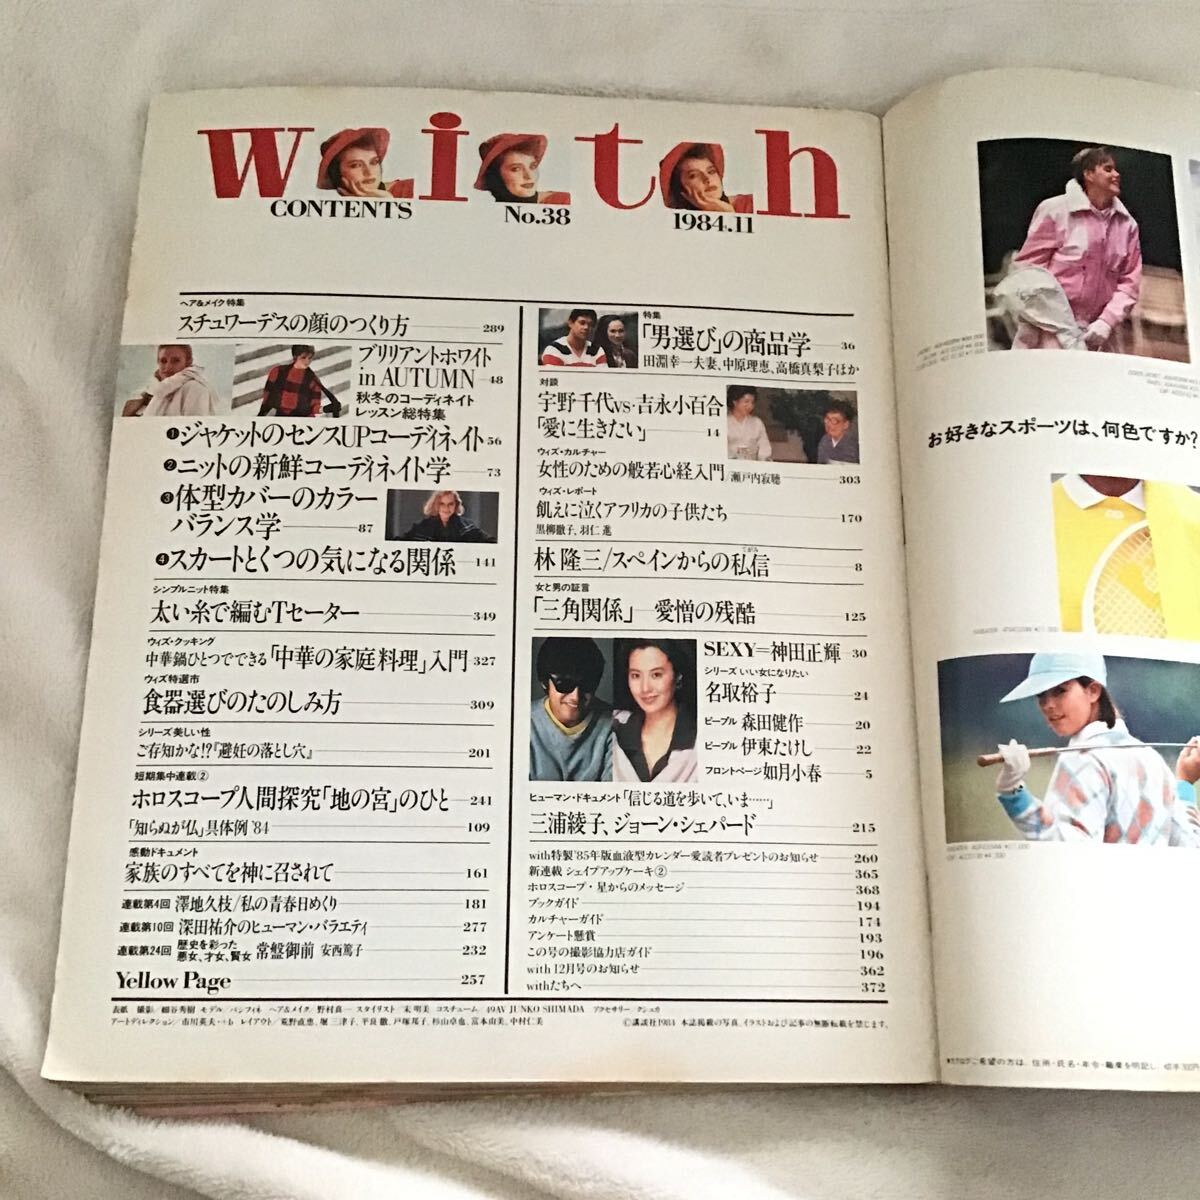 with
CONTENTS
No.38
1984.11
ヘア&メイク特集
スチュワーデスの顔のつくり方 289
ブリリアントホワイト
in AUTUMN 48
秋冬のコーディネイト
レッスン総特集
❶ジャケットのセンスUPコーディネイト 56
❷ニットの新鮮コーディネイト学 73
❸体型カバーのカラー
バランス学 87
❹スカートとくつの気になる関係 141
シンプルニット特集
太い糸で編むTセーター 349
ウィズ・クッキング
中華鍋ひとつでできる「中華の家庭料理」入門 327
ウィズ特選市
食器選びのたのしみ方 309
シリーズ美しい性
ご存知かな!?『避妊の落とし穴』 201
短期集中連載②
ホロスコープ人間探究「地の宮」のひと 241
「知らぬが仏」具体例'84 109
感動ドキュメント
家族のすべてを神に召されて 161
連載第4回 澤地久枝/私の青春日めくり 181
連載第10回 深田祐介のヒューマン・バラエティ 277
連載第24回 歴史を彩った悪女、才女、賢女 常盤御前 安西篤子 232
Yellow Page 257
特集
「男選び」の商品学 36
田淵幸一夫妻、中原理恵、高橋真梨子ほか
対談
宇野千代vs・吉永小百合
「愛に生きたい」 14
ウィズ・カルチャー
女性のための般若心経入門/瀬戸内寂聴 303
ウィズ・レポート
飢えに泣くアフリカの子供たち 170
黒柳徹子、羽仁 進
林 隆三/スペインからの私信 8
てがみ
女と男の証言
「三角関係」―愛憎の残酷 125
SEXY=神田正輝 30
シリーズ いい女になりたい
名取裕子 24
ピープル 森田健作 20
ピープル 伊東たけし 22
フロントページ 如月小春 5
ヒューマン・ドキュメント「信じる道を歩いて、いま……」
三浦綾子、ジョーン・シェパード 215
with特製'85年版血液型カレンダー愛読者プレゼントのお知らせ 260
新連載 シェイプアップケーキ② 365
ホロスコープ・星からのメッセージ 368
ブックガイド 194
カルチャーガイド 174
アンケート懸賞 193
この号の撮影協力店ガイド 196
with 12月号のお知らせ 362
withたちへ 372
表紙 撮影/細谷秀樹 モデル/パンフィネ ヘア&メイク/野村真一 スタイリスト/末明美 コスチューム/49AV JUNKO SHIMADA アクセサリー/クシュカ
アートディレクション/市川英夫・+b レイアウト/荒野直恵、堀 三津子、平良 徹、戸塚邦子、杉山卓也、富本由美、中村仁美
©講談社1984 本誌掲載の写真、イラストおよび記事の無断転載を禁じます。
お好きなスポーツは、何色ですか?
★カタログご希望の方は、住所・氏名・年令・職業を明記し、切手300円